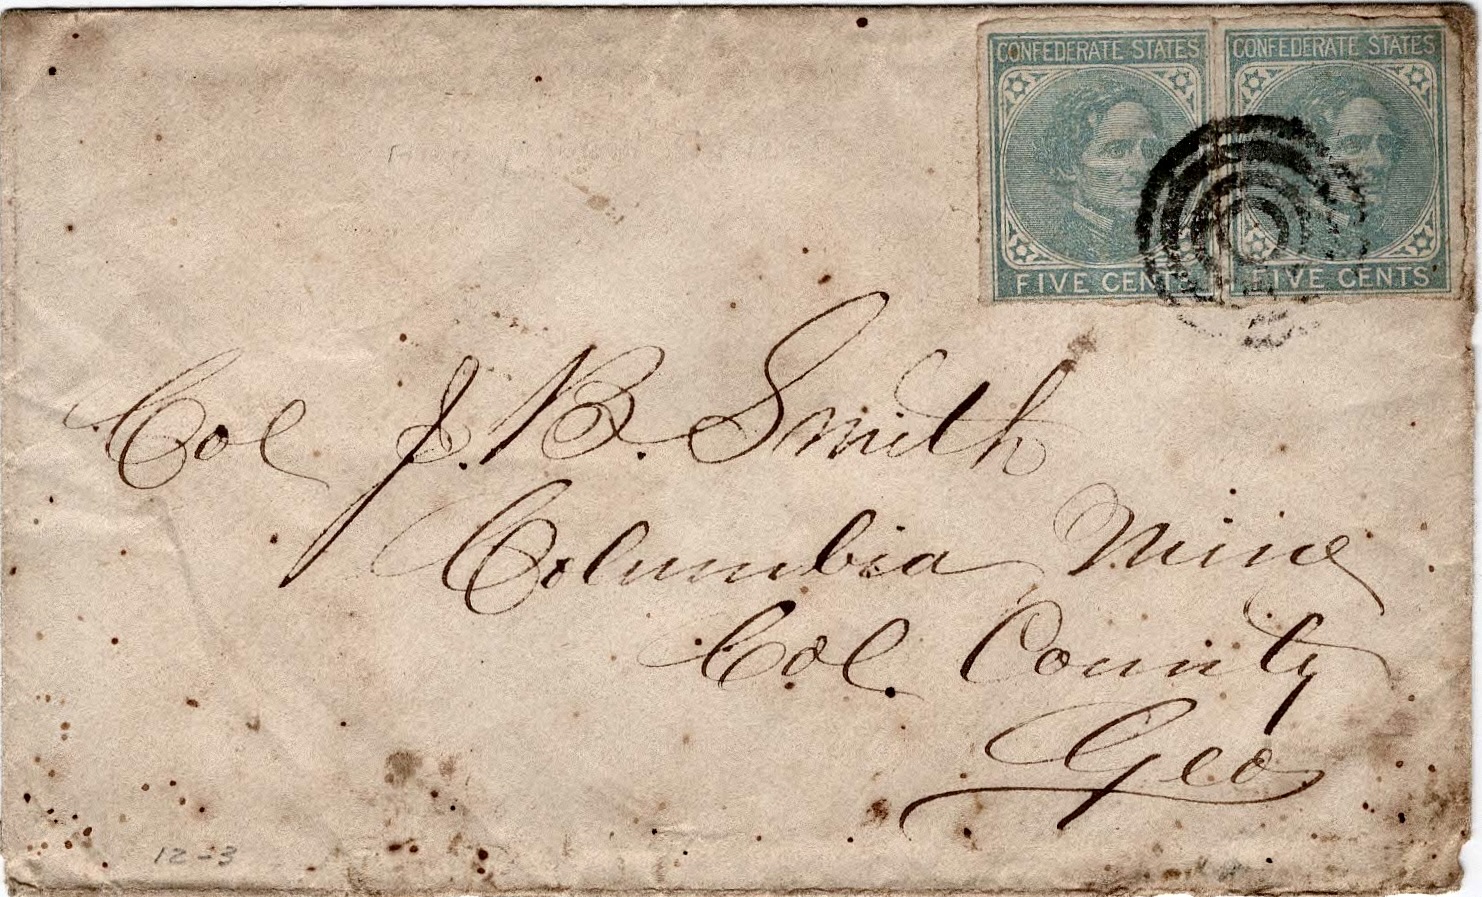 CONFEDERATE STATES CONFEDERATE STATES
FIVE CENTS FIVE CENTS
Col J. B. Smith
Columbia Mine
Col. County
Geo
12-3